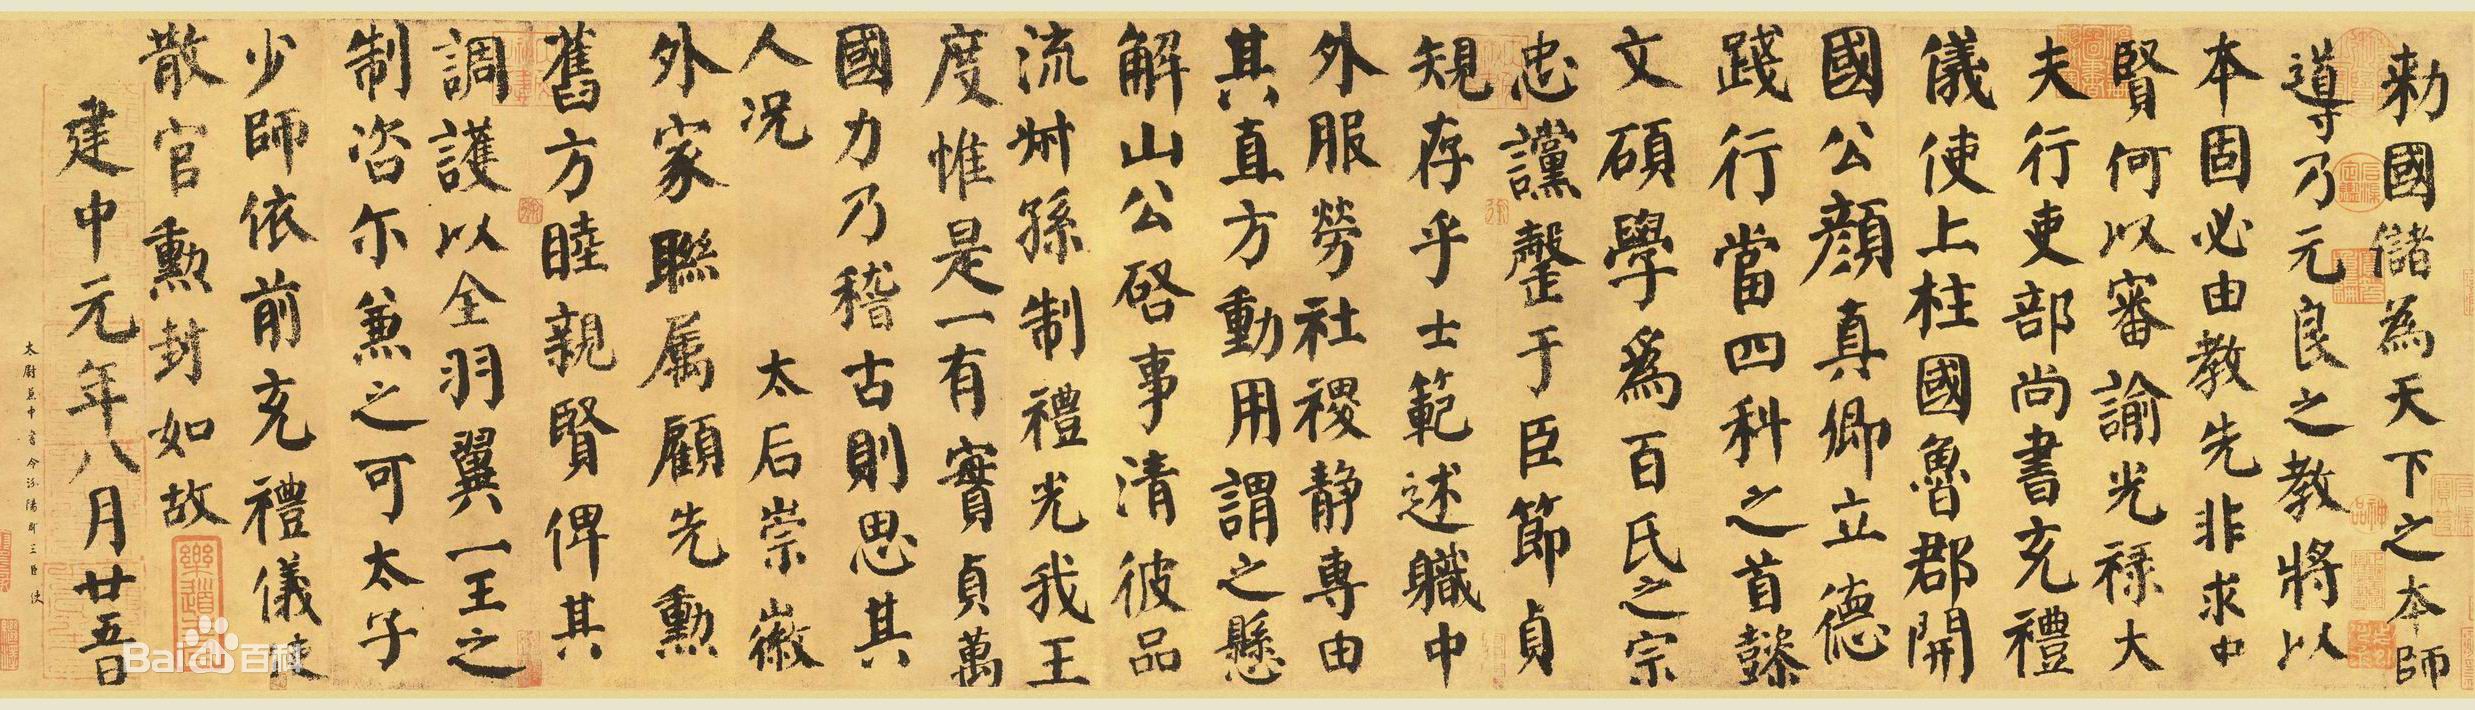 勅國儲為天下之本師
導乃元良之教將以
本固必由教先非求中
賢何以審諭光祿大
夫行吏部尚書充禮
儀使上柱國魯郡開
國公顏真卿立德
踐行當四科之首懿
文碩學為百氏之宗
忠讜罄于臣節貞
規存乎士範述職中
外服勞社稷静專由
其直方動用謂之懸
解山公啓事清彼品
流叔孫制禮光我王
度惟是一有實貞萬
國力乃稽古則思其
人况 太后崇徽
外家聯属顧先勲
舊方睦親賢俾其
調護以全羽翼一王之
制咨尓兼之可太子
少師依前充禮儀使
散官勲封如故
建中元年八月廿五日
太尉兼中書令汾陽郡王臣使
Bai百科